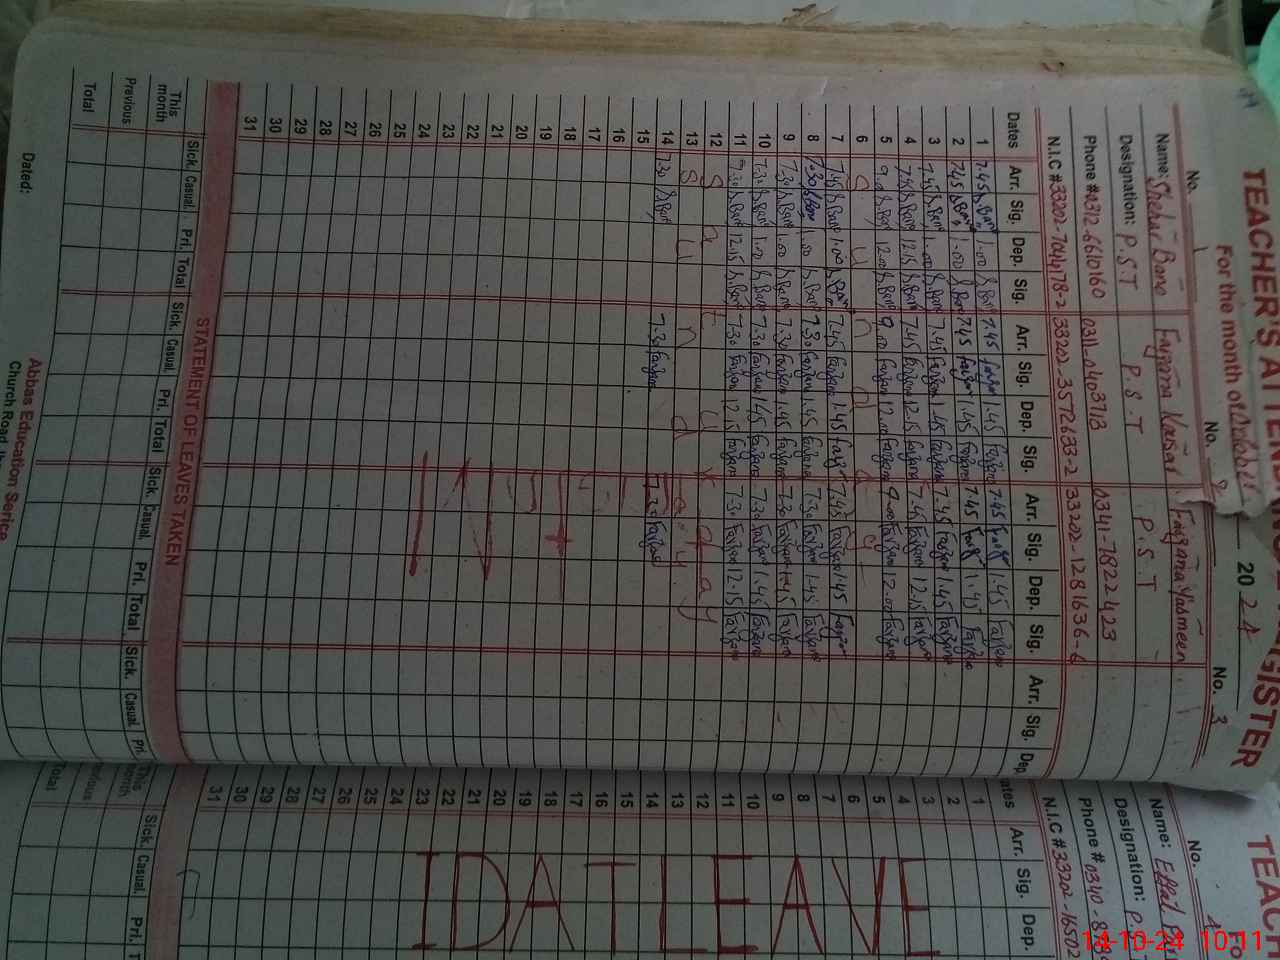 TEACHER'S ATTENDANCE REGISTER
For the month of October 2024
No. 1 No. 2 No. 3
Name: Shehar Bano Farzana Kausar Farzana Yasmeen
Designation: P.S.T P.S.T P.S.T
Phone # 0312-6610160 0311-0403713 0341-7822423
N.I.C # 33202-7044178-2 33202-3572633-2 33202-1281636-6
Dates Arr. Sig. Dep. Sig. Arr. Sig. Dep. Sig. Arr. Sig. Dep. Sig. Arr. Sig. Dep.
1 7.45 S.Bano 1.00 S.Bano 7.45 1.45 Farzana 7.45 1.45 Farzana
2 7.45 S.Bano 1.00 S.Bano 7.45 1.45 Farzana 7.45 1.45 Farzana
3 7.45 S.Bano 1.00 S.Bano 7.45 Farzana 1.45 Farzana 7.45 Farzana 1.45 Farzana
4 7.45 S.Bano 12.15 S.Bano 7.45 Farzana 12.15 Farzana 7.45 Farzana 12.15 Farzana
5 9.00 S.Bano 12.00 S.Bano 9.00 Farzana 12.00 Farzana 9.00 Farzana 12.00 Farzana
6 S u n d a y
7 7.45 S.Bano 1.00 S.Bano 7.45 Farzana 1.45 7.45 Farzana 1.45
8 7.30 S.Bano 1.00 S.Bano 7.30 Farzana 1.45 Farzana 7.30 Farzana 1.45 Farzana
9 7.30 S.Bano 1.00 S.Bano 7.30 Farzana 1.45 Farzana 7.30 Farzana 1.45 Farzana
10 7.30 S.Bano 1.00 S.Bano 7.30 Farzana 1.45 Farzana 7.30 Farzana 1.45 Farzana
11 7.30 S.Bano 12.15 S.Bano 7.30 Farzana 12.15 Farzana 7.30 Farzana 12.15 Farzana
12 S a t u r d a y
13 S u n d a y
14 7.30 S.Bano 7.30 Farzana 7.30 Farzana
15
16
17
18
19
20
21
22
23
24
25
26
27
28
29
30
31
STATEMENT OF LEAVES TAKEN
Sick. Casual. Pri. Total Sick. Casual. Pri. Total Sick. Casual. Pri. Total Sick. Casual. Pri.
This month
Previous
Total
Dated:
Abbas Education Service
Church Road
TEACH
No. 4
Name:
Designation: P
Phone # 0340-8
N.I.C # 33202-1650
Dates Arr. Sig. Dep.
1
2
3
4
5
6
7
8
9
10
11
12
13
14
15
16
17
18
19
20
21
22
23
24
25
26
27
28
29
30
31
IDAT LEAVE
Sick. Casual. Pri.
This month
Total
14-10-24 10:11